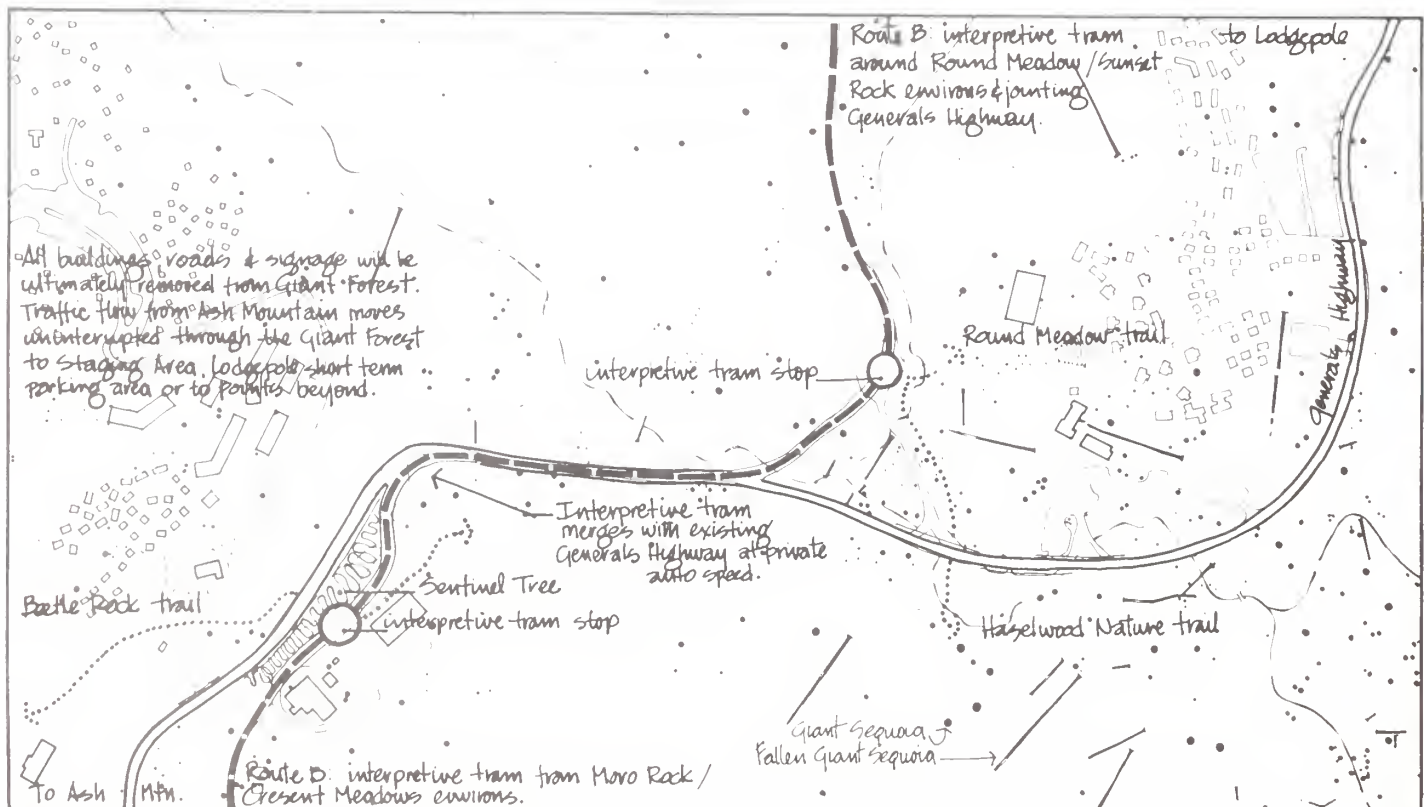 Route B: interpretive tram
around Round Meadow / Sunset
Rock environs & jointing
Generals Highway.
to Lodgepole
All buildings, roads & signage will be
ultimately removed from Giant Forest.
Traffic flow from Ash Mountain moves
uninterrupted through the Giant Forest
to Staging Area, Lodgepole short term
parking area or to points beyond.
Generals Highway
Round Meadow trail
interpretive tram stop
Interpretive tram
merges with existing
Generals Highway at private
auto speed.
Sentinel Tree
interpretive tram stop
Beetle Rock trail
Hazelwood Nature trail
Giant Sequoia
Fallen Giant Sequoia
Route B: interpretive tram from Moro Rock /
Cresent Meadows environs.
To Ash Mtn.